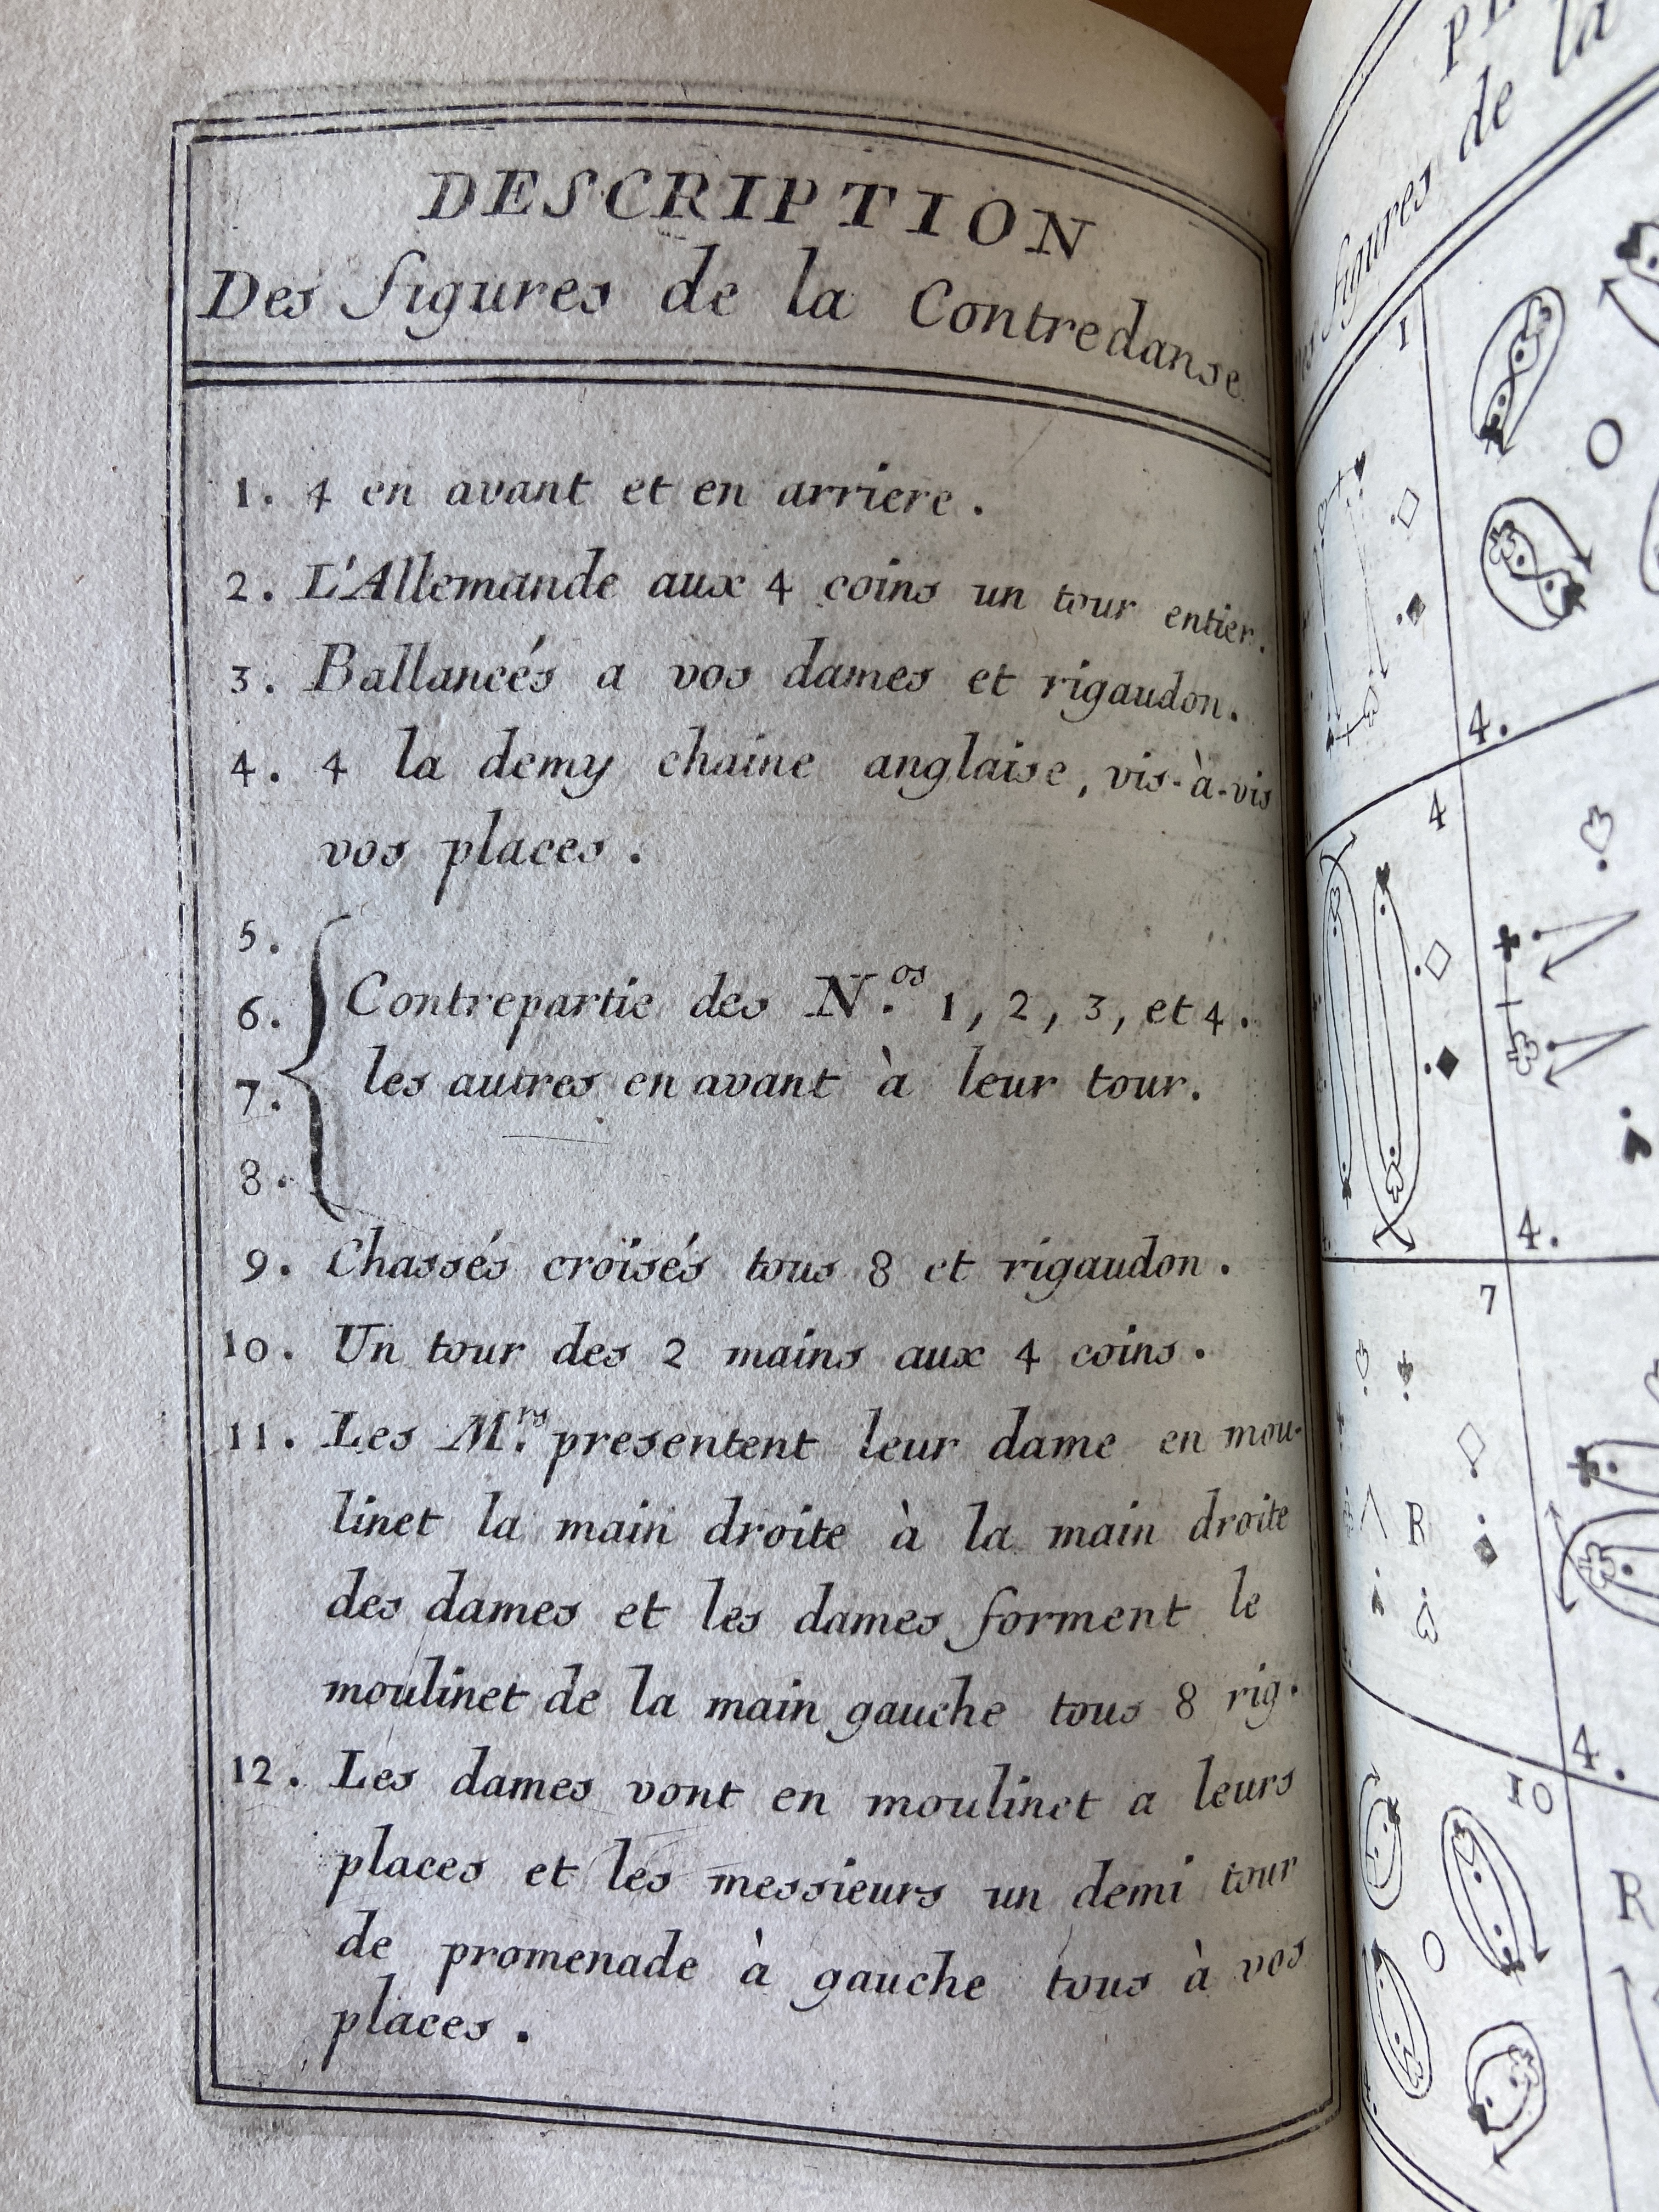 DESCRIPTION
Des figures de la Contredanse.
1. 4 en avant et en arriere.
2. L'Allemande aux 4 coins un tour entier.
3. Ballancés a vos dames et rigaudon.
4. 4 la demy chaine anglaise, vis-à-vis
vos places.
5.
6. Contrepartie des N.os 1, 2, 3, et 4.
7. les autres en avant à leur tour.
8.
9. Chassés croïsés tous 8 et rigaudon.
10. Un tour des 2 mains aux 4 coins.
11. Les M.rs presentent leur dame en mou-
linet la main droite à la main droite
des dames et les dames forment le
moulinet de la main gauche tous 8 rig.
12. Les dames vont en moulinet a leurs
places et les messieurs un demi tour
de promenade à gauche tous à vos
places.
figures de la
1
4.
4
4.
7
R
4.
10
R